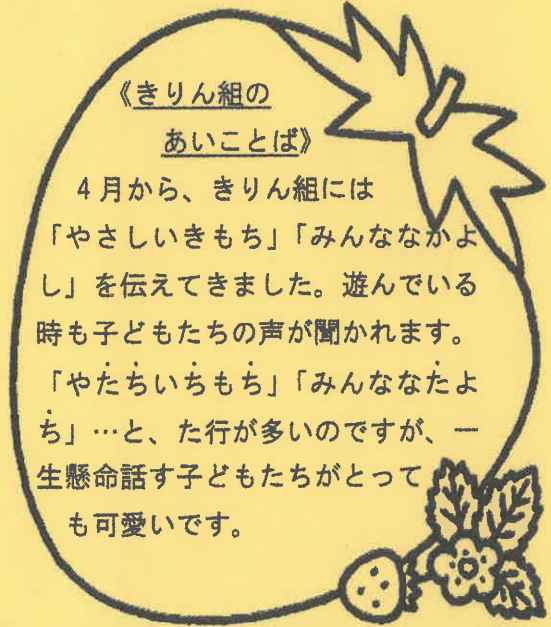 《きりん組の
あいことば》
4月から、きりん組には
「やさしいきもち」「みんななかよ
し」を伝えてきました。遊んでいる
時も子どもたちの声が聞かれます。
「やたちいちもち」「みんななたよ
ち」…と、た行が多いのですが、一
生懸命話す子どもたちがとって
も可愛いです。